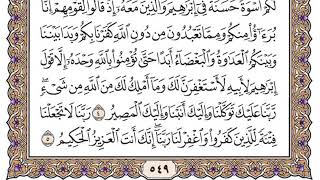 لَكُمْ أُسْوَةٌ حَسَنَةٌ فِىٓ إِبْرَٰهِيمَ وَٱلَّذِينَ مَعَهُۥٓ إِذْ قَالُوا۟ لِقَوْمِهِمْ إِنَّا
بُرَءَٰٓؤُا۟ مِنكُمْ وَمِمَّا تَعْبُدُونَ مِن دُونِ ٱللَّهِ كَفَرْنَا بِكُمْ وَبَدَا بَيْنَنَا
وَبَيْنَكُمُ ٱلْعَدَٰوَةُ وَٱلْبَغْضَآءُ أَبَدًا حَتَّىٰ تُؤْمِنُوا۟ بِٱللَّهِ وَحْدَهُۥٓ إِلَّا قَوْلَ
إِبْرَٰهِيمَ لِأَبِيهِ لَأَسْتَغْفِرَنَّ لَكَ وَمَآ أَمْلِكُ لَكَ مِنَ ٱللَّهِ مِن شَىْءٍ ۖ
رَّبَّنَا عَلَيْكَ تَوَكَّلْنَا وَإِلَيْكَ أَنَبْنَا وَإِلَيْكَ ٱلْمَصِيرُ ٤ رَبَّنَا لَا تَجْعَلْنَا
فِتْنَةً لِّلَّذِينَ كَفَرُوا۟ وَٱغْفِرْ لَنَا رَبَّنَآ ۖ إِنَّكَ أَنتَ ٱلْعَزِيزُ ٱلْحَكِيمُ ٥
٥٤٩